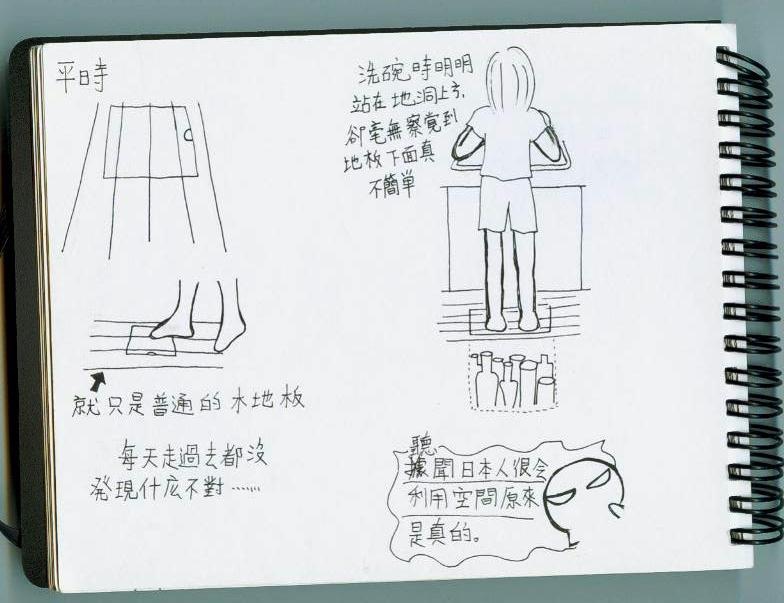 平時
就只是普通的木地板
每天走過去都沒
發現什庅不對……
洗碗時明明
站在地洞上方,
卻毫無察覺到
地板下面真
不簡単
聽
據聞日本人很会
利用空間原來
是真的。